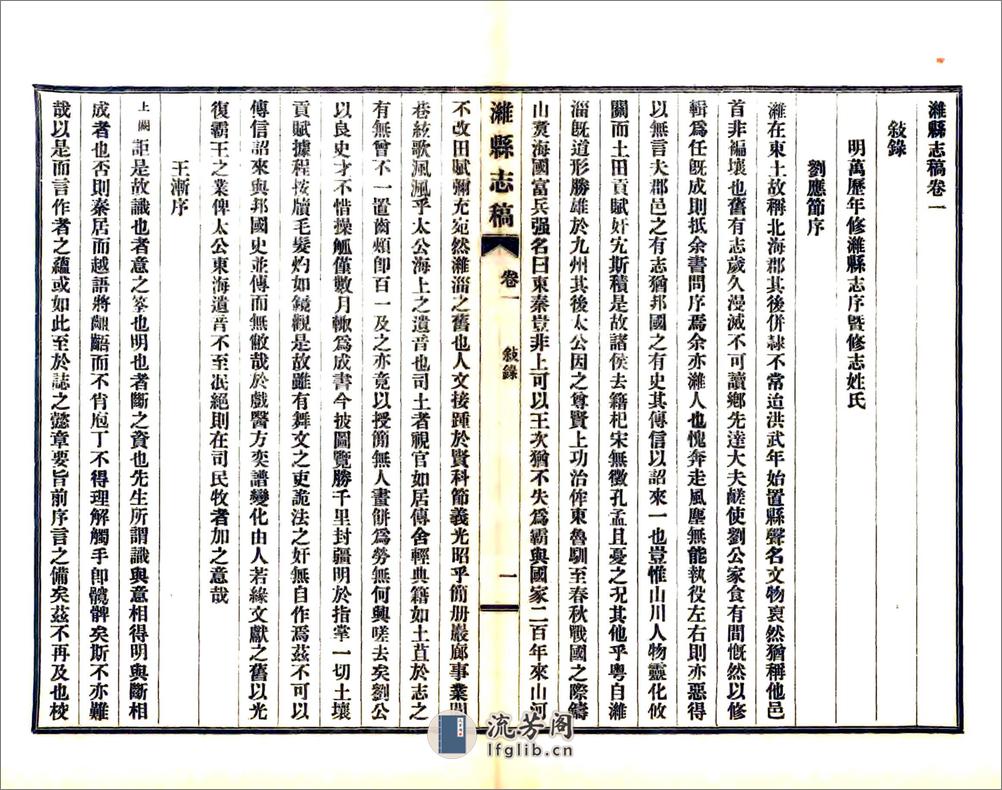 濰縣志稿卷一
敍錄
明萬歷年修濰縣志序暨修志姓氏
劉應節序
濰在東土故稱北海郡其後併隷不常迨洪武年始置縣聲名文物裒然猶稱他邑
首非褊壤也舊有志歲久漫滅不可讀鄉先達大夫鹺使劉公家食有間慨然以修
輯爲任旣成則抵余書問序焉余亦濰人也愧奔走風塵無能執役左右則亦惡得
以無言夫郡邑之有志猶邦國之有史其傳信以詔來一也豈惟山川人物靈化攸
關而土田貢賦奸宄斯積是故諸侯去籍杞宋無徵孔孟且憂之况其他乎粤自濰
淄旣道形勝雄於九州其後太公因之尊賢上功治侔東魯馴至春秋戰國之際鑄
山煑海國富兵强名曰東秦豈非上可以王次猶不失爲霸與國家二百年來山河
濰縣志稿
卷一
敍錄
一
不改田賦彌充宛然濰淄之舊也人文接踵於賢科節義光昭乎簡册巖廊事業閭
巷絃歌渢渢乎太公海上之遺音也司土者視官如居傳舍輕典籍如土苴於志之
有無曾不一置齒頰卽百一及之亦竟以授簡無人畫餅爲勞無何興嗟去矣劉公
以良史才不惜操觚僅數月輙爲成書今披圖覽勝千里封疆明於指掌一切土壤
貢賦據程按牘毛髮灼如鏡觀是故雖有舞文之吏詭法之奸無自作焉茲不可以
傳信詔來與邦國史並傳而無斁哉於戲醫方奕譜變化由人若緣文獻之舊以光
復霸王之業俾太公東海遺音不至泯絕則在司民牧者加之意哉
王漸序
上闕詎是故識也者意之筌也明也者斷之資也先生所謂識與意相得明與斷相
成者也否則秦居而越語將齟齬而不肯庖丁不得理解觸手卽髖髀矣斯不亦難
哉以是而言作者之蘊或如此至於誌之懿章要旨前序言之備矣茲不再及也校
流芳阁
lfglib.cn